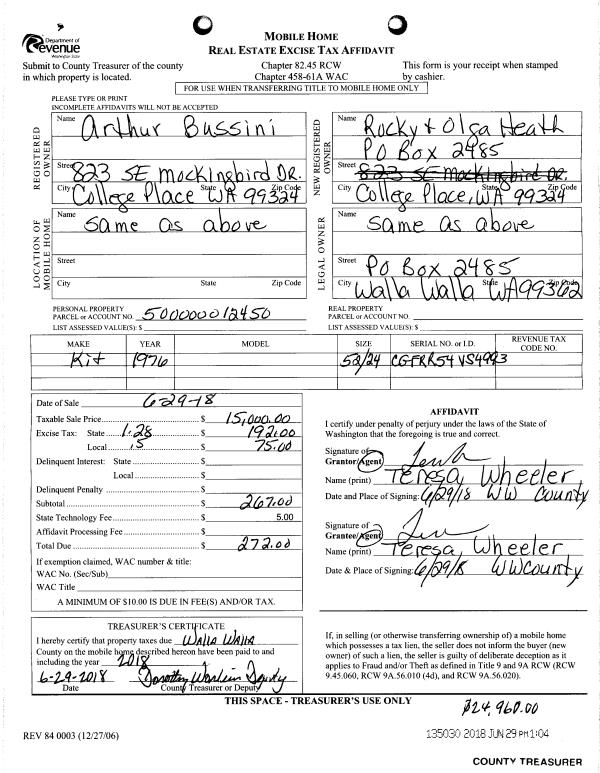 Department of
Revenue
Washington State
MOBILE HOME
REAL ESTATE EXCISE TAX AFFIDAVIT
Submit to County Treasurer of the county
in which property is located.
Chapter 82.45 RCW
Chapter 458-61A WAC
This form is your receipt when stamped
by cashier.
FOR USE WHEN TRANSFERRING TITLE TO MOBILE HOME ONLY
PLEASE TYPE OR PRINT
INCOMPLETE AFFIDAVITS WILL NOT BE ACCEPTED
REGISTERED OWNER
Name Arthur Bussini
Street 823 SE Mockingbird DR.
City State Zip Code
College Place WA 99324
NEW REGISTERED OWNER
Name Rocky & Olga Heath
PO Box 2485
Street 823 SE Mockingbird DR.
City State Zip Code
College Place, WA 99324
LOCATION OF MOBILE HOME
Name Same as above
Street
City State Zip Code
LEGAL OWNER
Name Same as above
Street PO Box 2485
City State Zip Code
Walla Walla WA 99362
PERSONAL PROPERTY
PARCEL or ACCOUNT NO. 500000012450
LIST ASSESSED VALUE(S): $
REAL PROPERTY
PARCEL or ACCOUNT NO.
LIST ASSESSED VALUE(S): $
MAKE YEAR MODEL SIZE SERIAL NO. or I.D. REVENUE TAX CODE NO.
Kit 1976 52/24
Date of Sale 6-29-18
Taxable Sale Price $ 15,000.00
Excise Tax: State 1.28 $ 192.00
Local .5 $ 75.00
Delinquent Interest: State $
Local $
Delinquent Penalty $
Subtotal $ 267.00
State Technology Fee $ 5.00
Affidavit Processing Fee $
Total Due $ 272.00
If exemption claimed, WAC number & title:
WAC No. (Sec/Sub)
WAC Title
A MINIMUM OF $10.00 IS DUE IN FEE(S) AND/OR TAX.
AFFIDAVIT
I certify under penalty of perjury under the laws of the State of
Washington that the foregoing is true and correct.
Signature of
Grantor/Agent
Name (print) Teresa Wheeler
Date and Place of Signing: 6/29/18 WW County
Signature of
Grantee/Agent
Name (print) Teresa Wheeler
Date & Place of Signing: 6/29/18 WW County
TREASURER'S CERTIFICATE
I hereby certify that property taxes due Walla Walla
County on the mobile home described hereon have been paid to and
including the year 2018
6-29-2018 Deputy
Date County Treasurer or Deputy
If, in selling (or otherwise transferring ownership of) a mobile home
which possesses a tax lien, the seller does not inform the buyer (new
owner) of such a lien, the seller is guilty of deliberate deception as it
applies to Fraud and/or Theft as defined in Title 9 and 9A RCW (RCW
9.45.060, RCW 9A.56.010 (4d), and RCW 9A.56.020).
THIS SPACE - TREASURER'S USE ONLY
$24,960.00
REV 84 0003 (12/27/06)
135030 2018 JUN 29 PM 1:04
COUNTY TREASURER